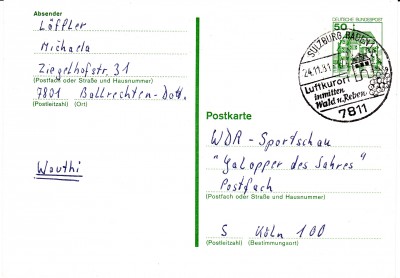 Absender
Löffler
Michaela
Ziegelhofstr. 31
(Postfach oder Straße und Hausnummer)
7801 Ballrechten-Dott.
(Postleitzahl) (Ort)
Wauthi
DEUTSCHE BUNDESPOST
50
SULZBURG, BADEN
24.11.81
Luftkurort
inmitten
Wald u. Reben
7811
Postkarte
WDR - Sportschau
"Galopper des Jahres"
Postfach
(Postfach oder Straße und Hausnummer)
5 Köln 100
(Postleitzahl) (Bestimmungsort)